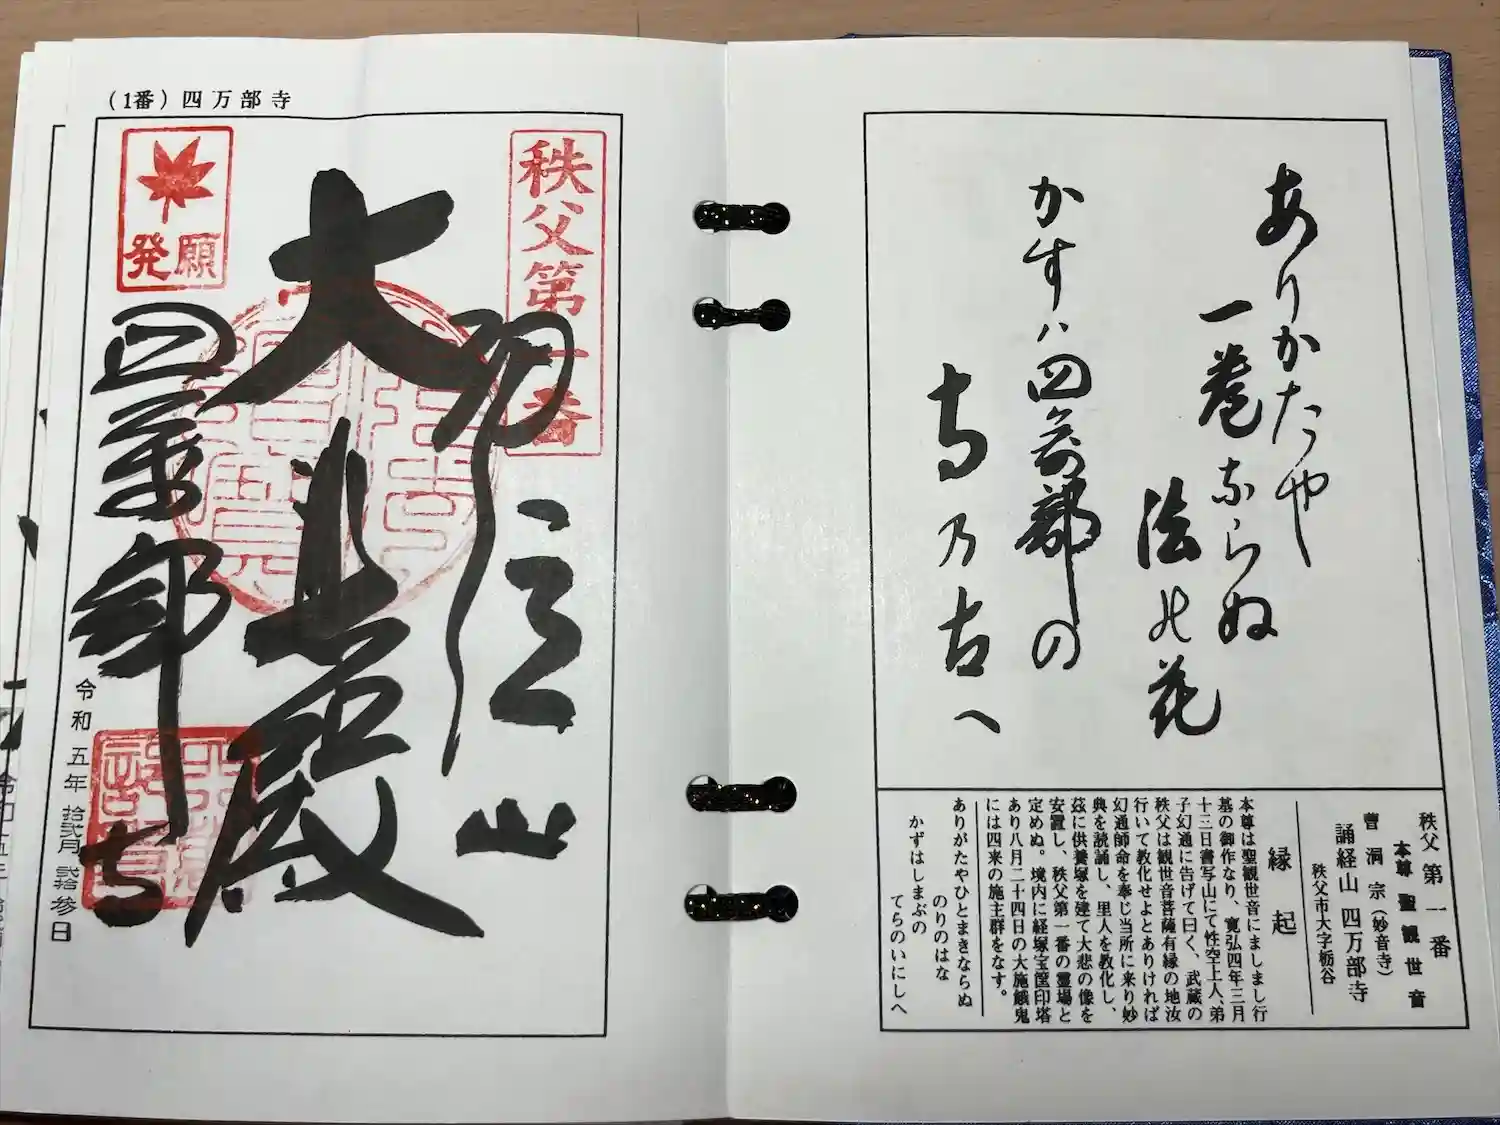 ありかたや
一巻ならぬ
法の花
かすハ四萬部の
寺乃古へ
秩父第一番
本尊聖観世音
曹洞宗（妙音寺）
誦経山四万部寺
秩父市大字栃谷
縁起
本尊は聖観世音にましまし行
基の御作なり、寛弘四年三月
十三日書写山にて性空上人、弟
子幻通に告げて曰く、武蔵の
秩父は観世音菩薩有縁の地汝
行いて教化せよとありければ
幻通師命を奉じ当所に来り妙
典を読誦し、里人を教化し、
茲に供養塚を建て大悲の像を
安置し、秩父第一番の霊場と
定めぬ。境内に経塚宝筐印塔
あり八月二十四日の大施餓鬼
には四来の施主群をなす。
ありがたやひとまきならぬ
のりのはな
かずはしまぶの
てらのいにしへ
（1番）四万部寺
秩父第一番
大悲殿
発願
四萬部寺
令和五年拾弐月弐拾参日